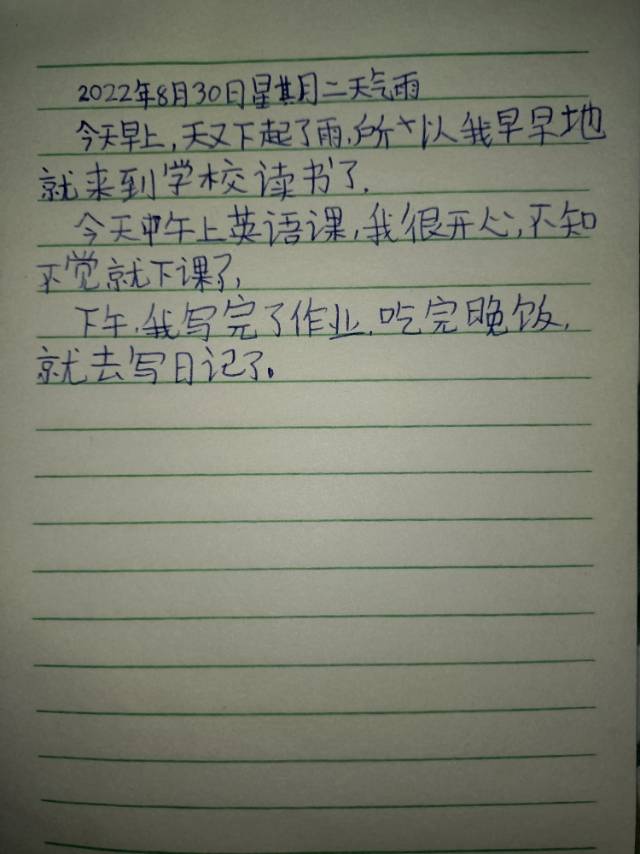 2022年8月30日星期二天气雨
今天早上,天又下起了雨,所以我早早地
就来到学校读书了.
今天中午上英语课,我很开心,不知
不觉就下课了,
下午,我写完了作业,吃完晚饭,
就去写日记了。